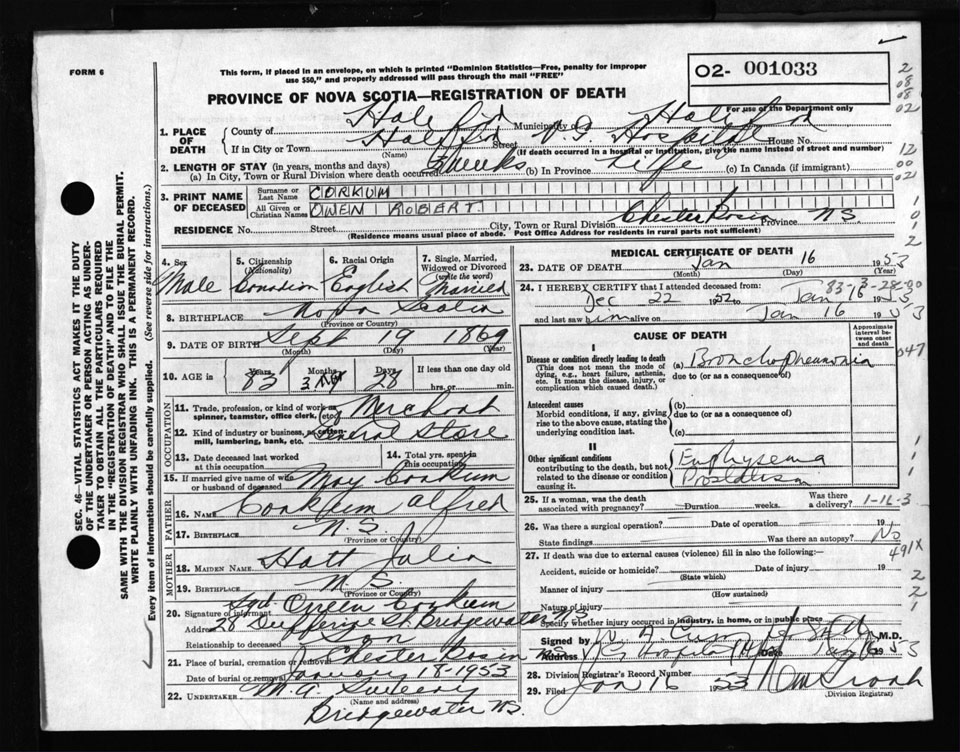 FORM 6
This form, if placed in an envelope, on which is printed "Dominion Statistics—Free, penalty for improper
use $50," and properly addressed will pass through the mail "FREE"
02- 001033
For use of the Department only
PROVINCE OF NOVA SCOTIA—REGISTRATION OF DEATH
1. PLACE OF DEATH
County of Municipality of
If in City or Town Halifax Street Hospital House No.
(Name) (If death occurred in a hospital or institution, give the name instead of street and number)
2. LENGTH OF STAY (in years, months and days)
(a) In City, Town or Rural Division where death occurred weeks (b) In Province Life (c) In Canada (if immigrant)
3. PRINT NAME OF DECEASED
Surname or Last Name CORKUM
All Given or Christian Names OWEN ROBERT.
RESIDENCE No. Street City, Town or Rural Division Chester Basin Province N.S.
(Residence means usual place of abode. Post Office Address for residents in rural parts not sufficient)
4. Sex Male
5. Citizenship (Nationality) Canadian
6. Racial Origin English
7. Single, Married, Widowed or Divorced (write the word) Married
8. BIRTHPLACE Nova Scotia
(Province or Country)
9. DATE OF BIRTH Sept 19 1869
(Month) (Day) (Year)
10. AGE is Years 83 Months 3 Days 28 If less than one day old
hrs. or min.
OCCUPATION
11. Trade, profession, or kind of work as spinner, teamster, office clerk, etc. Merchant
12. Kind of industry or business, as cotton-mill, lumbering, bank, etc. General Store
13. Date deceased last worked at this occupation
14. Total yrs. spent in this occupation
15. If married give name of wife or husband of deceased May Corkum
FATHER
16. NAME Corkum Alfred
17. BIRTHPLACE N.S.
(Province or Country)
MOTHER
18. MAIDEN NAME Hatt Julia
19. BIRTHPLACE N.S.
(Province or Country)
20. Signature of informant Sgd. Owen Corkum
Address 28 St. Bridgewater N.S.
Relationship to deceased Son
21. Place of burial, cremation or removal Chester Basin N.S.
Date of burial or removal January 18-1953
22. UNDERTAKER M.A. Sweeny
(Name and address)
Bridgewater N.S.
MEDICAL CERTIFICATE OF DEATH
23. DATE OF DEATH Jan 16 1953
(Month) (Day) (Year)
83-3-28-90
24. I HEREBY CERTIFY that I attended deceased from:
Dec 22 1952 to Jan 16 1953
and last saw him alive on Jan 16 1953
CAUSE OF DEATH
Approximate interval between onset and death
I
Disease or condition directly leading to death
(This does not mean the mode of dying, e.g., heart failure, asthenia, etc. It means the disease, injury, or complication which caused death.)
(a) Bronchopneumonia
due to (or as a consequence of)
Antecedent causes
Morbid conditions, if any, giving rise to the above cause, stating the underlying condition last.
(b)
due to (or as a consequence of)
(c)
II
Other significant conditions
contributing to the death, but not related to the disease or condition causing it.
Emphysema
25. If a woman, was the death associated with pregnancy? Duration weeks. Was there a delivery?
1-16-3
26. Was there a surgical operation? Date of operation 19
State findings Was there an autopsy? No
491X
27. If death was due to external causes (violence) fill in also the following:
Accident, suicide or homicide? Date of injury 19
(State which)
Manner of injury
(How sustained)
Nature of injury
Specify whether injury occurred in industry, in home, or in public place
Signed by M.D.
Address V.G. Hospital Date Jan 16 1953
28. Division Registrar's Record Number 73
29. Filed Jan 16 1953
(Division Registrar)
SEC. 46—VITAL STATISTICS ACT MAKES IT THE DUTY
OF THE UNDERTAKER OR PERSON ACTING AS UNDER-
TAKER TO OBTAIN ALL THE PARTICULARS REQUIRED
IN THE "REGISTRATION OF DEATH" AND TO FILE THE
SAME WITH THE DIVISION REGISTRAR WHO SHALL ISSUE THE BURIAL PERMIT.
WRITE PLAINLY WITH UNFADING INK. THIS IS A PERMANENT RECORD.
Every item of information should be carefully supplied. (See reverse side for instructions.)